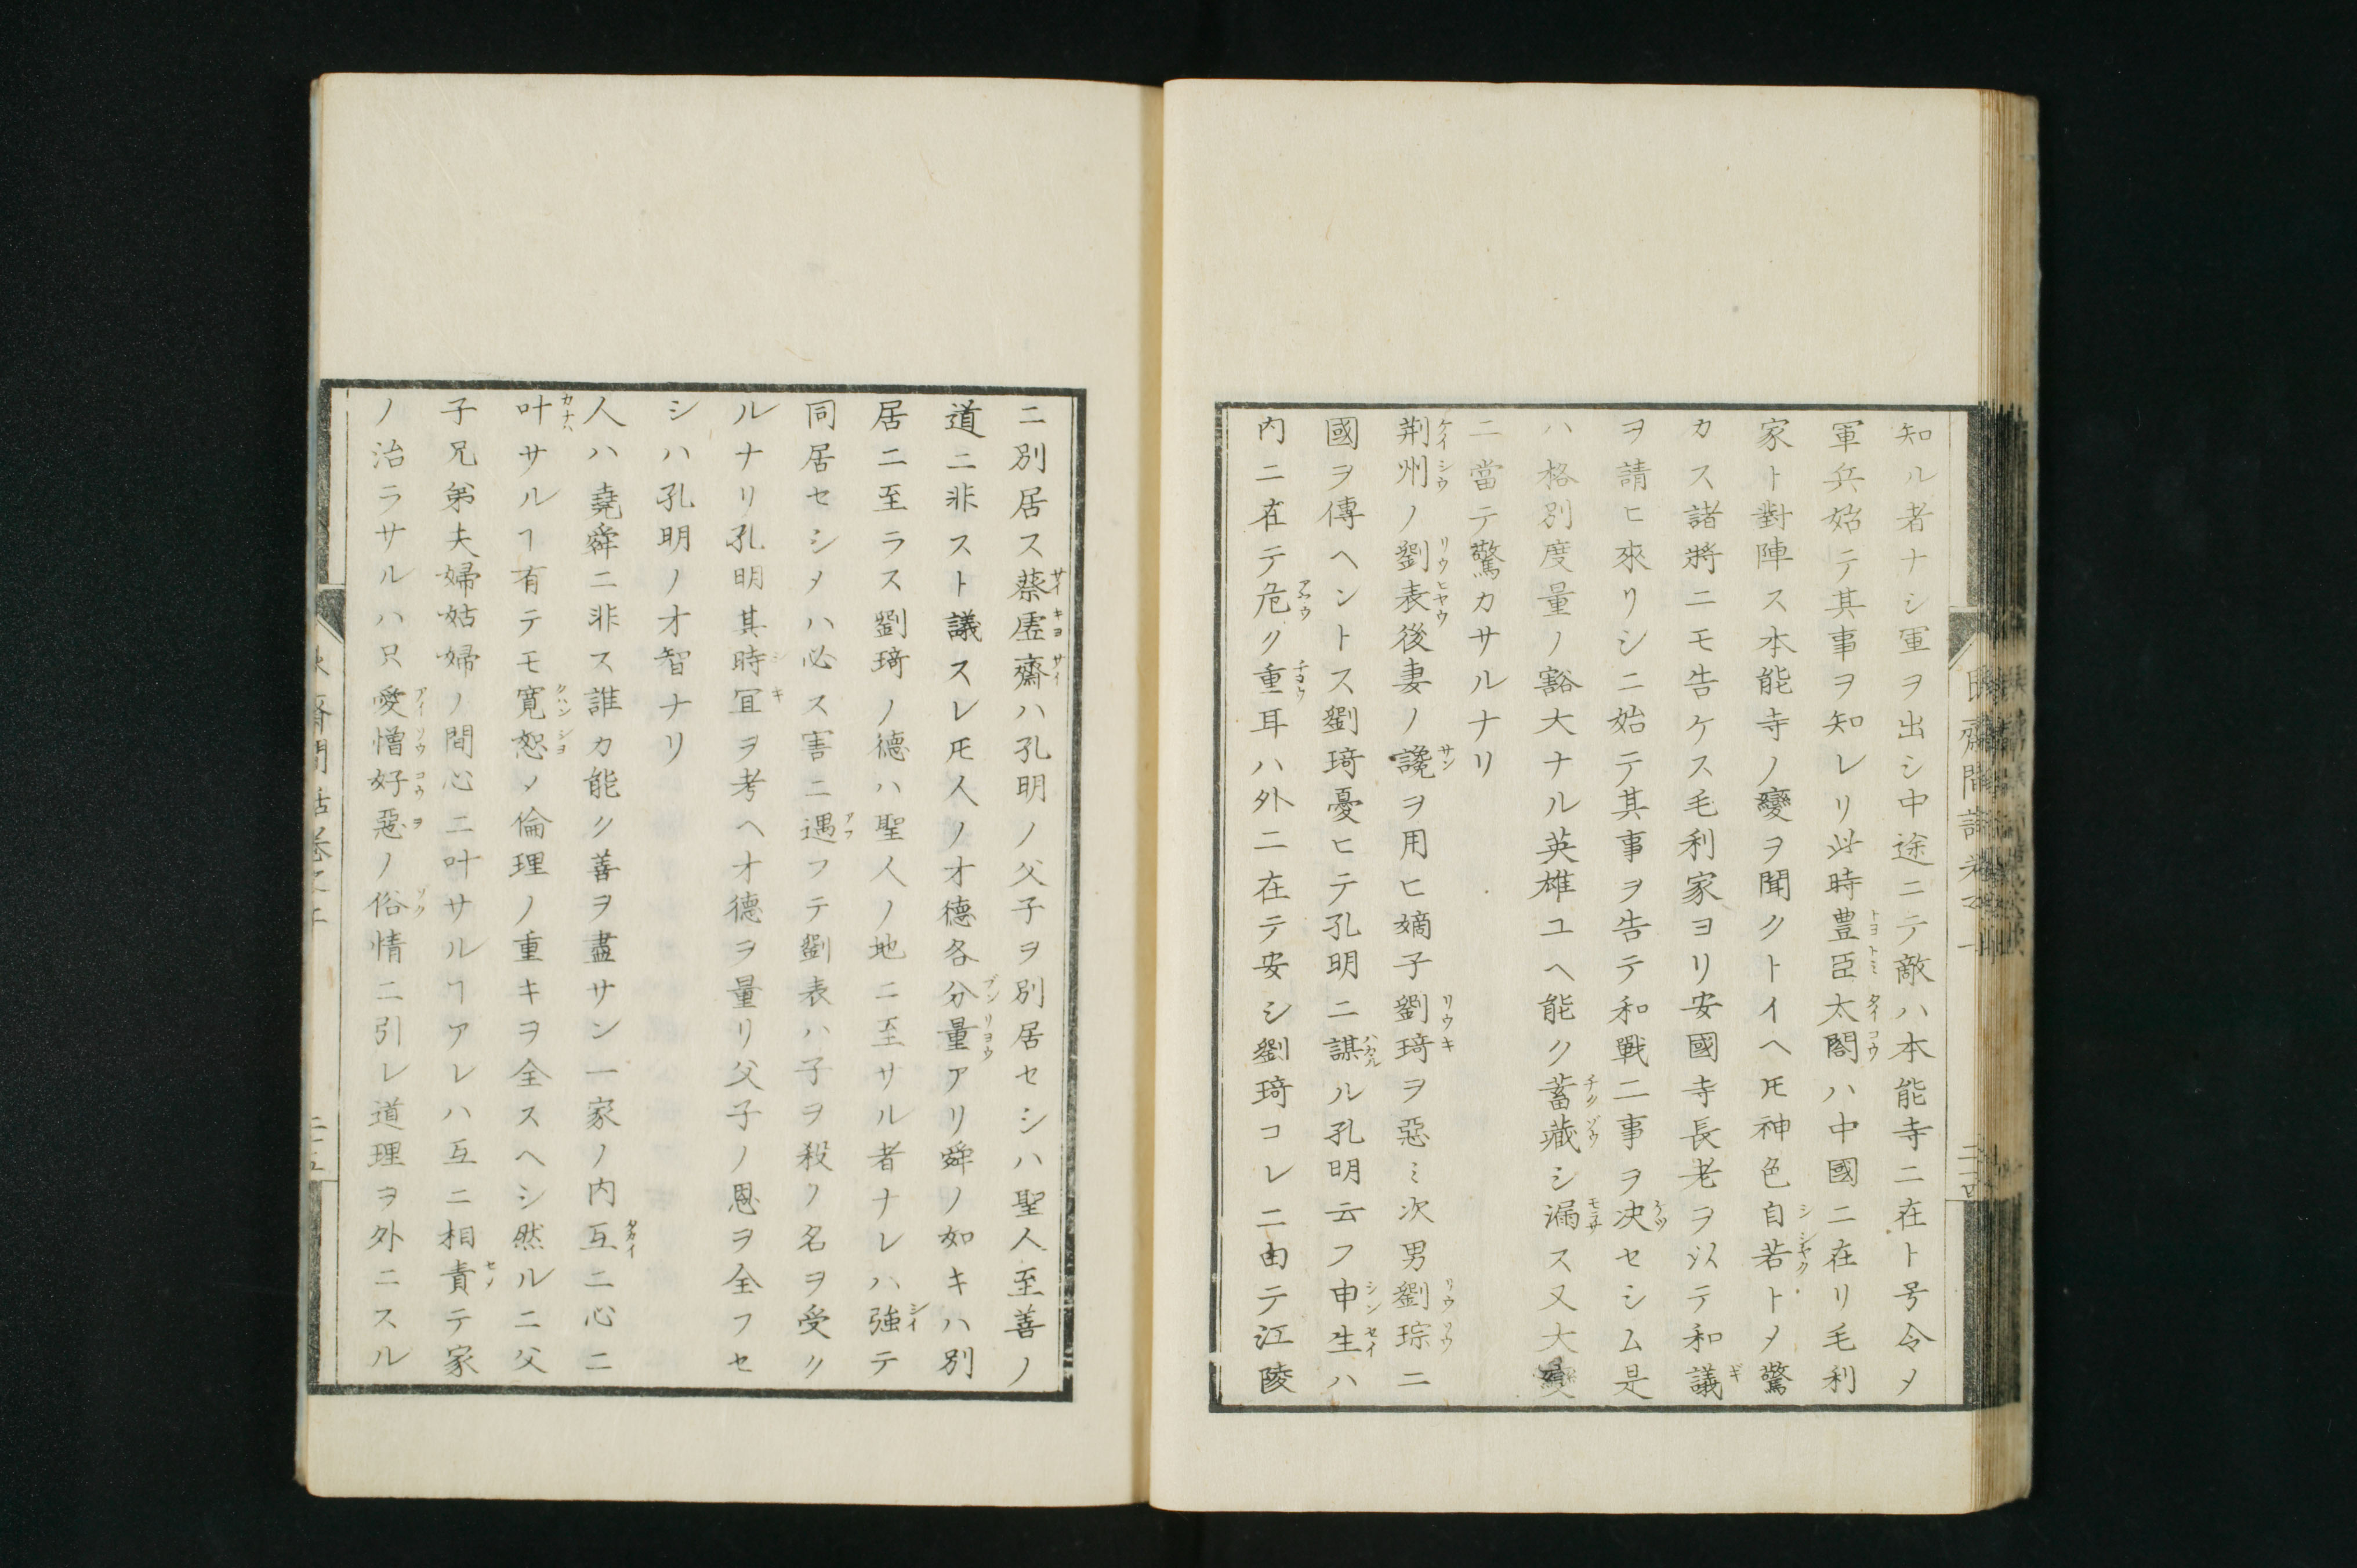 知ル者ナシ軍ヲ出シ中途ニテ敵ハ本能寺ニ在ト号令メ
軍兵始テ其事ヲ知レリ此時豊臣太閤ハ中國ニ在リ毛利
家ト對陣ス本能寺ノ變ヲ聞クトイヘ𪜈神色自若トメ驚
カス諸將ニモ告ケス毛利家ヨリ安國寺長老ヲ以テ和議
ヲ請ヒ來リシニ始テ其事ヲ告テ和戰二事ヲ决セシム是
ハ格別度量ノ豁大ナル英雄ユヘ能ク蓄藏シ漏ス又大變
ニ當テ驚カサルナリ
荆州ノ劉表後妻ノ讒ヲ用ヒ嫡子劉琦ヲ惡ミ次男劉琮ニ
國ヲ傳ヘントス劉琦憂ヒテ孔明ニ謀ル孔明云フ申生ハ
内ニ在テ危ク重耳ハ外ニ在テ安シ劉琦コレニ由テ江陵
ニ別居ス蔡虚齋ハ孔明ノ父子ヲ別居セシハ聖人至善ノ
道ニ非スト議スレ𪜈人ノ才德各分量アリ舜ノ如キハ別
居ニ至ラス劉琦ノ德ハ聖人ノ地ニ至サル者ナレハ強テ
同居セシメハ必ス害ニ遇フテ劉表ハ子ヲ殺ノ名ヲ受ク
ルナリ孔明其時冝ヲ考ヘ才德ヲ量リ父子ノ恩ヲ全フセ
シハ孔明ノ才智ナリ
人ハ堯舜ニ非ス誰カ能ク善ヲ盡サン一家ノ内互ニ心ニ
叶サルヿ有テモ寛恕メ倫理ノ重キヲ全スヘシ然ルニ父
子兄弟夫婦姑婦ノ間心ニ叶サルヿアレハ互ニ相責テ家
ノ治ラサルハ只愛憎好惡ノ俗情ニ引レ道理ヲ外ニスル